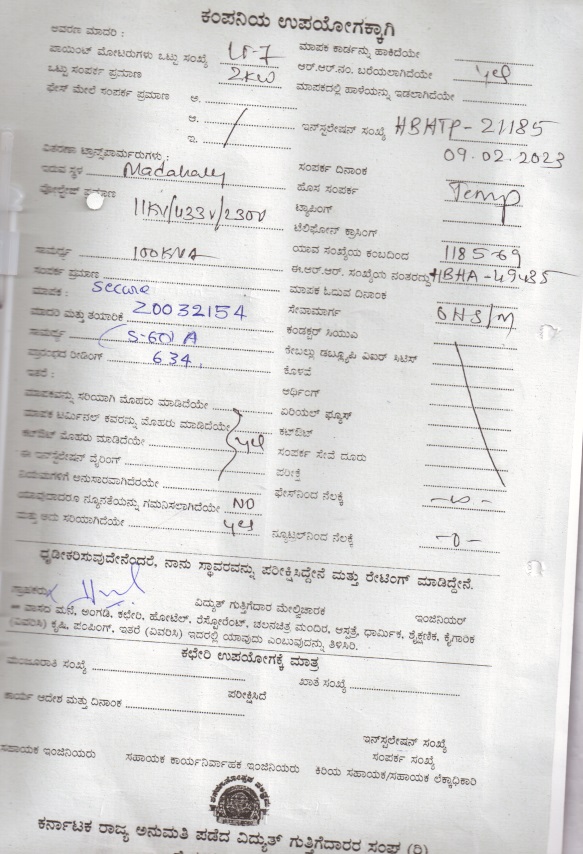 ಕಂಪನಿಯ ಉಪಯೋಗಕ್ಕಾಗಿ
ಆವರಣ ಮಾದರಿ :
ಮಾಪಕ ಕಾರ್ಡನ್ನು ಹಾಕಿದೆಯೇ
ಪಾಯಿಂಟ್ ಮೋಟರುಗಳು ಒಟ್ಟು ಸಂಖ್ಯೆ LT-7
ಆರ್.ಆರ್.ನಂ. ಬರೆಯಲಾಗಿದೆಯೇ yes
ಒಟ್ಟು ಸಂಪರ್ಕ ಪ್ರಮಾಣ 2KW
ಮಾಪಕದಲ್ಲಿ ಹಾಳೆಯನ್ನು ಇಡಲಾಗಿದೆಯೇ
ಫೇಸ್ ಮೇಲೆ ಸಂಪರ್ಕ ಪ್ರಮಾಣ ಅ.
ಆ.
ಇ.
ಇನ್‌ಸ್ಟಲೇಷನ್ ಸಂಖ್ಯೆ HBHTP-21185
09.02.2023
ವಿತರಣಾ ಟ್ರಾನ್ಸ್‌ಫಾರ್ಮರುಗಳು :
ಸಂಪರ್ಕ ದಿನಾಂಕ
ಇರುವ ಸ್ಥಳ Madahally
ಹೊಸ ಸಂಪರ್ಕ Temp
11KV/433V/230V
ಟ್ಯಾಪಿಂಗ್
ಟೆಲಿಫೋನ್ ಕ್ರಾಸಿಂಗ್
ಸಾಮರ್ಥ್ಯ 100KVA
ಯಾವ ಸಂಖ್ಯೆಯ ಕಂಬದಿಂದ 118569
ಸಂಪರ್ಕ ಪ್ರಮಾಣ
ಈ.ಆರ್.ಆರ್. ಸಂಖ್ಯೆಯ ನಂತರದ್ದು HBHA-49485
ಮಾಪಕ : secure
ಮಾಪಕ ಓದುವ ದಿನಾಂಕ
ಮಾದರಿ ಮತ್ತು ತಯಾರಿಕೆ 20032154
ಸೇವಾಮಾರ್ಗ OHS/M
ಸಾಮರ್ಥ್ಯ 5-60A
ಕಂಡಕ್ಟರ್ ಸಿಯುಎ
ಪ್ರಾರಂಭದ ರೀಡಿಂಗ್ 634
ಇತರೆ :
ಕೊಳವೆ
ಅರ್ಥಿಂಗ್
ಮಾಪಕವನ್ನು ಸರಿಯಾಗಿ ಮೊಹರು ಮಾಡಿದೆಯೇ
ಏರಿಯಲ್ ಫ್ಯೂಸ್
ಮಾಪಕ ಟರ್ಮಿನಲ್ ಕವರನ್ನು ಮೊಹರು ಮಾಡಿದೆಯೇ
ಕಟ್‌ಔಟ್
ಕಟ್‌ಔಟ್ ಮೊಹರು ಮಾಡಿದೆಯೇ yes
ಸಂಪರ್ಕ ಸೇವೆ ದೂರು
ಈ ಇನ್‌ಸ್ಟಲೇಷನ್ ವೈರಿಂಗ್
ಪರೀಕ್ಷೆ
ನಿಯಮಗಳಿಗೆ ಅನುಸಾರವಾಗಿದೆಯೇ
ಫೇಸ್‌ನಿಂದ ನೆಲಕ್ಕೆ
ಯಾವುದಾದರೂ ನ್ಯೂನತೆಯನ್ನು ಗಮನಿಸಲಾಗಿದೆಯೇ NO
ಮತ್ತು ಅದು ಸರಿಯಾಗಿದೆಯೇ yes
ನ್ಯೂಟ್ರಲ್‌ನಿಂದ ನೆಲಕ್ಕೆ -0-
ಧೃಡೀಕರಿಸುವುದೇನೆಂದರೆ, ನಾನು ಸ್ಥಾವರವನ್ನು ಪರೀಕ್ಷಿಸಿದ್ದೇನೆ ಮತ್ತು ರೇಟಿಂಗ್ ಮಾಡಿದ್ದೇನೆ.
ಗ್ರಾಹಕರು ವಿದ್ಯುತ್ ಗುತ್ತಿಗೆದಾರ ಮೇಲ್ವಿಚಾರಕ ಇಂಜಿನಿಯರ್
ವಾಸದ ಮನೆ, ಅಂಗಡಿ, ಕಛೇರಿ, ಹೋಟೆಲ್, ರೆಸ್ಟೋರೆಂಟ್, ಚಲನಚಿತ್ರ ಮಂದಿರ, ಆಸ್ಪತ್ರೆ, ಧಾರ್ಮಿಕ, ಶೈಕ್ಷಣಿಕ, ಕೈಗಾರಿಕ
(ವಿವರಿಸಿ) ಕೃಷಿ, ಪಂಪಿಂಗ್, ಇತರೆ (ವಿವರಿಸಿ) ಇದರಲ್ಲಿ ಯಾವುದು ಎಂಬುವುದನ್ನು ತಿಳಿಸಿರಿ.
ಕಛೇರಿ ಉಪಯೋಗಕ್ಕೆ ಮಾತ್ರ
ಮಂಜೂರಾತಿ ಸಂಖ್ಯೆ ಖಾತೆ ಸಂಖ್ಯೆ
ಪರೀಕ್ಷಿಸಿದೆ
ಕಾರ್ಯ ಆದೇಶ ಮತ್ತು ದಿನಾಂಕ
ಇನ್‌ಸ್ಟಲೇಷನ್ ಸಂಖ್ಯೆ
ಸಂಪರ್ಕ ಸಂಖ್ಯೆ
ಸಹಾಯಕ ಇಂಜಿನಿಯರು ಸಹಾಯಕ ಕಾರ್ಯನಿರ್ವಾಹಕ ಇಂಜಿನಿಯರು ಕಿರಿಯ ಸಹಾಯಕ/ಸಹಾಯಕ ಲೆಕ್ಕಾಧಿಕಾರಿ
ಕರ್ನಾಟಕ ರಾಜ್ಯ ಅನುಮತಿ ಪಡೆದ ವಿದ್ಯುತ್ ಗುತ್ತಿಗೆದಾರರ ಸಂಘ (ರಿ)